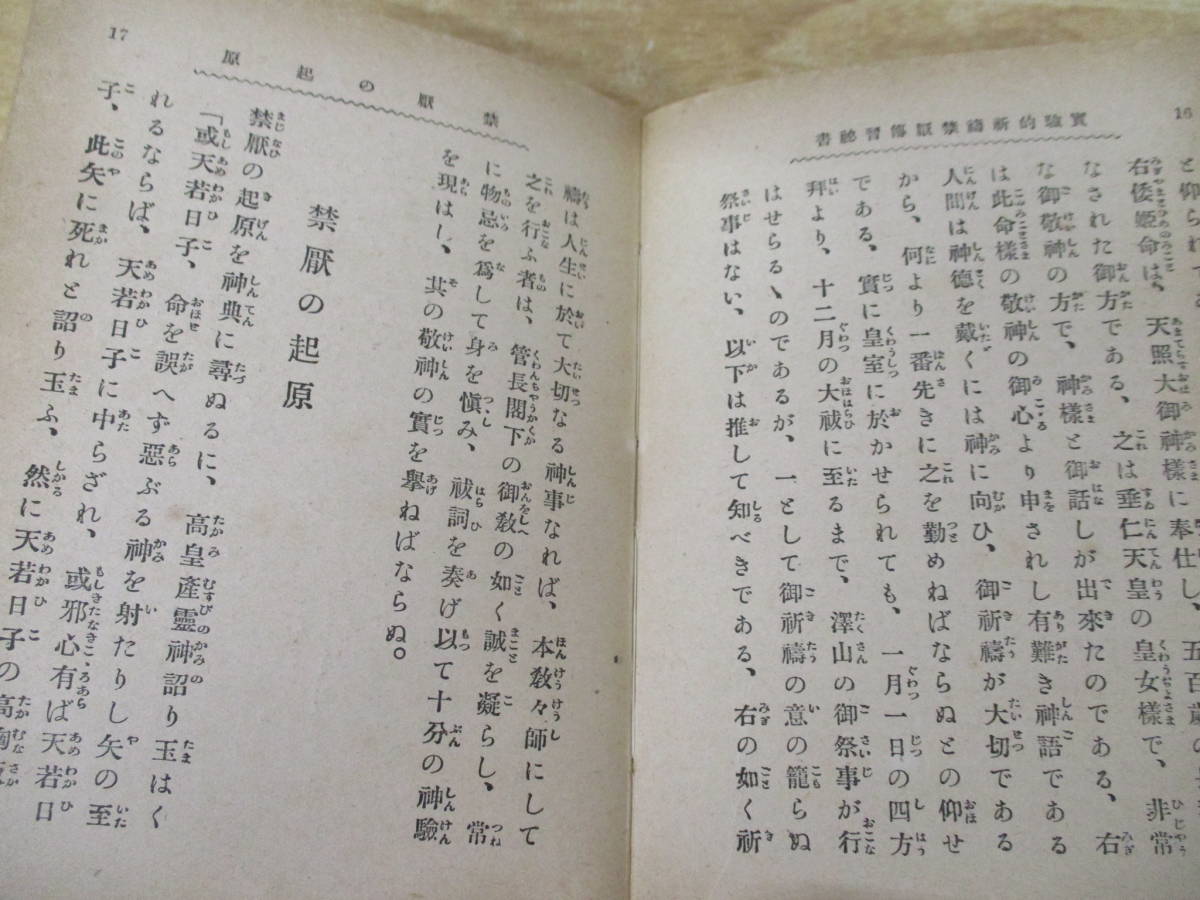 16
實驗的祈禱禁厭傳習祕書
と仰られて
右倭姬命は、天照大御神樣に奉仕し、五百歲の
なされた御方である、之は垂仁天皇の皇女樣で、非常
な御敬神の方で、神樣と御話しが出來たのである、右
は此命樣の敬神の御心より申されし有難き神語である
人間は神德を戴くには神に向ひ、御祈禱が大切である
から、何より一番先きに之を勤めねばならぬとの仰せ
である、實に皇室に於かせられても、一月一日の四方
拜より、十二月の大祓に至るまで、澤山の御祭事が行
はせらるゝのであるが、一として御祈禱の意の籠らぬ
祭事はない、以下は推して知べきである、右の如く祈
17
禁厭の起原
禱は人生に於て大切なる神事なれば、本敎々師にして
之を行ふ者は、管長閣下の御敎の如く誠を凝らし、常
に物忌を爲して身を愼み、祓詞を奏げ以て十分の神驗
を現はし、其の敬神の實を擧ねばならぬ。
禁厭の起原
禁厭の起原を神典に尋ぬるに、高皇產靈神詔り玉はく
「或天若日子、命を誤へず惡ぶる神を射たりし矢の至
れるならば、天若日子に中らざれ、或邪心有ば天若日
子、此矢に死れと詔り玉ふ、然に天若日子の高胸坂